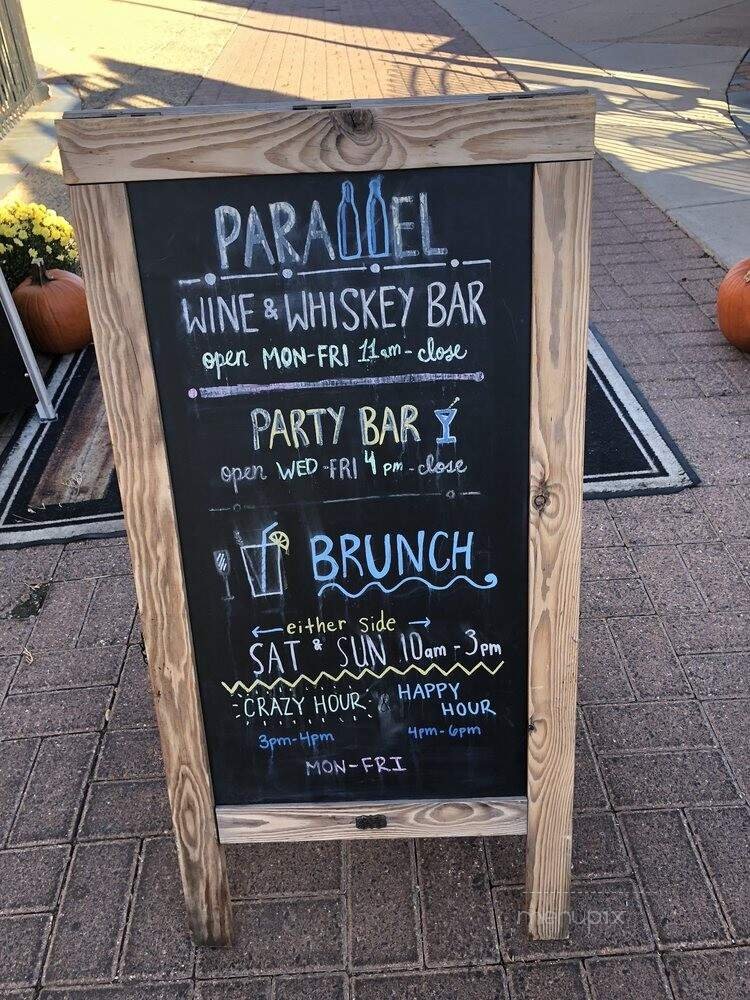 PARALLEL
WINE & WHISKEY BAR
open MON-FRI 11am-close
PARTY BAR
open WED-FRI 4pm-close
BRUNCH
← either side →
SAT & SUN 10am-3pm
CRAZY HOUR & HAPPY HOUR
3pm-4pm 4pm-6pm
MON-FRI
menupix